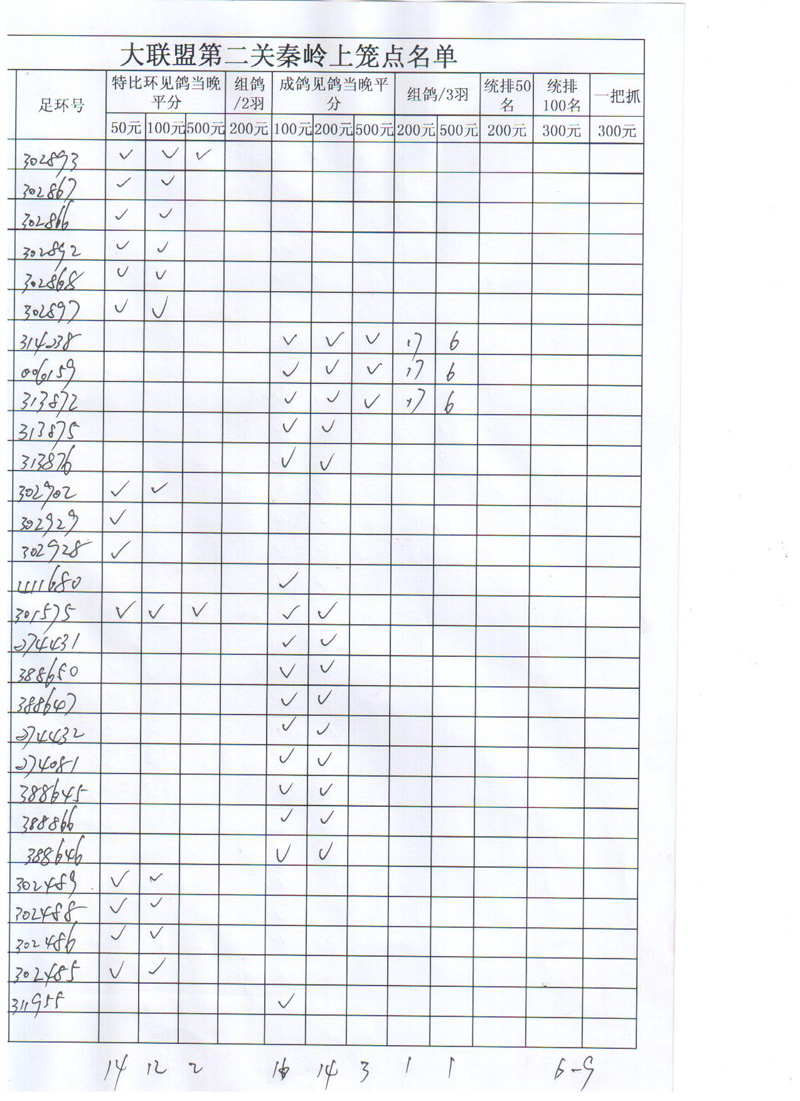 大联盟第二关秦岭上笼点名单
足环号 特比环见鸽当晚平分 组鸽/2羽 成鸽见鸽当晚平分 组鸽/3羽 统排50名 统排100名 一把抓
50元 100元 500元 200元 100元 200元 500元 200元 500元 200元 300元 300元
302893 ✓ ✓ ✓
302867 ✓ ✓
302866 ✓ ✓
302892 ✓ ✓
302868 ✓ ✓
302897 ✓ ✓
314238 ✓ ✓ ✓ 17 6
006159 ✓ ✓ ✓ 17 6
313872 ✓ ✓ ✓ 17 6
313875 ✓ ✓
313876 ✓ ✓
302902 ✓ ✓
302929 ✓
302928 ✓
411680 ✓
301575 ✓ ✓ ✓ ✓ ✓
274431 ✓ ✓
388650 ✓ ✓
388647 ✓ ✓
274432 ✓ ✓
274081 ✓ ✓
388645 ✓ ✓
388866 ✓ ✓
388646 ✓ ✓
302489 ✓ ✓
302488 ✓ ✓
302486 ✓ ✓
302485 ✓ ✓
311955 ✓
14 12 2 16 14 3 1 1 6-9